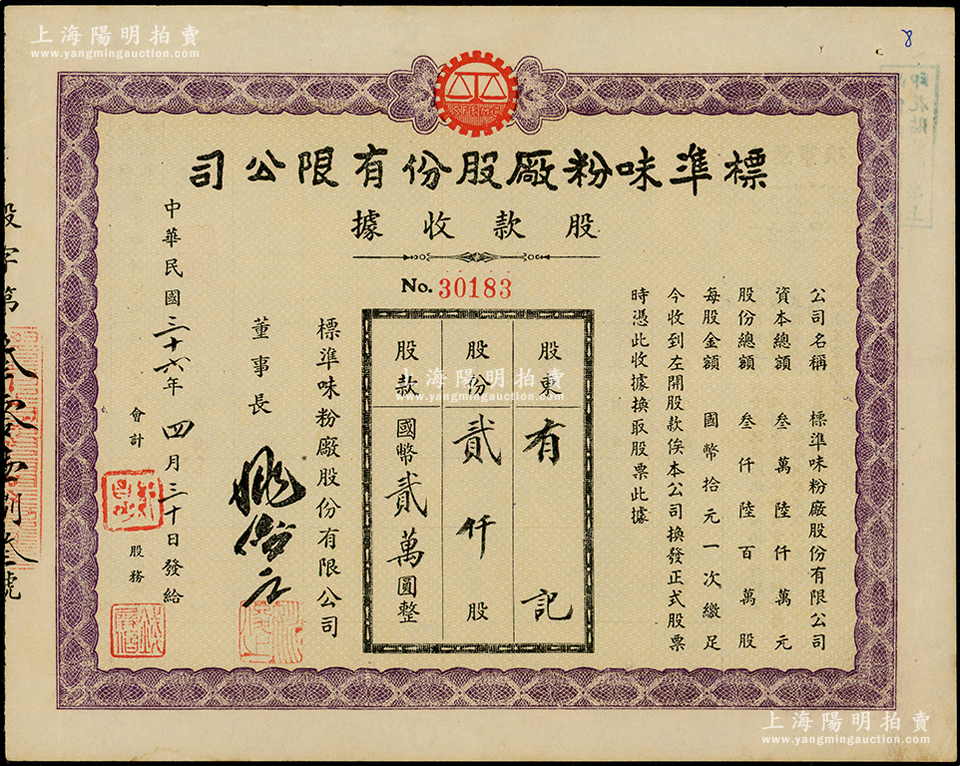 上海陽明拍賣
www.yangmingauction.com
8
標準味粉厰股份有限公司
股款收據
No. 30183
公司名稱 標準味粉廠股份有限公司
資本總額 叁萬陸仟萬元
股份總額 叁仟陸百萬股
每股金額 國幣拾元一次繳足
今收到左開股款俟本公司換發正式股票
時憑此收據換取股票此據
股東 有記
股份 貳仟股
股款 國幣貳萬圓整
上海陽明拍賣
www.yangmingauction.com
標準味粉廠股份有限公司
董事長 姚俊之
中華民國三十六年四月三十日發給
會計
股務
股字第叁零壹捌叁號
上海陽明拍賣
www.yangmingauction.com